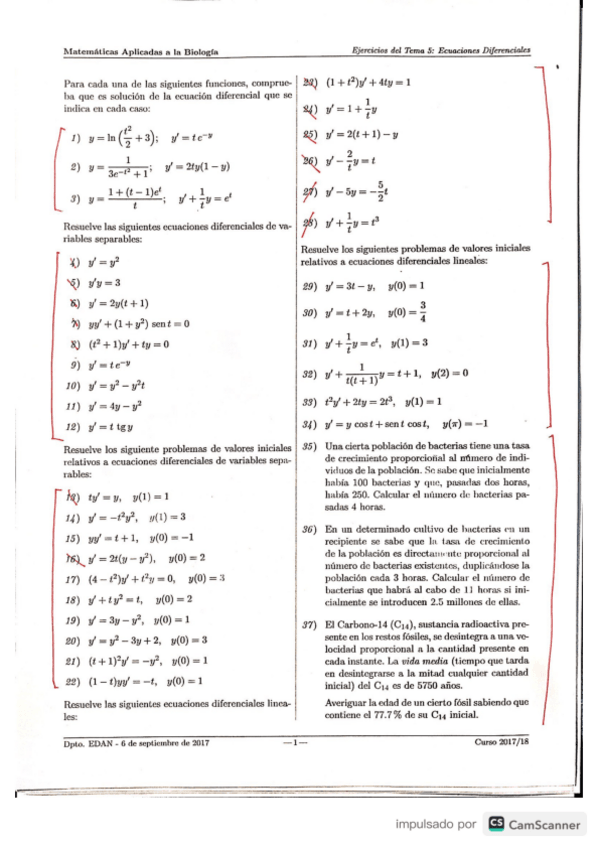 Matemáticas Aplicadas a la Biología
Ejercicios del Tema 5: Ecuaciones Diferenciales
Para cada una de las siguientes funciones, comprue-
ba que es solución de la ecuación diferencial que se
indica en cada caso:
1) y = ln (t²/2 + 3); y′ = t e^−y
2) y = 1/(3e^−t² + 1); y′ = 2ty(1 − y)
3) y = (1 + (t − 1)e^t)/t; y′ + 1/t y = e^t
Resuelve las siguientes ecuaciones diferenciales de va-
riables separables:
4) y′ = y²
5) y′y = 3
6) y′ = 2y(t + 1)
7) yy′ + (1 + y²) sen t = 0
8) (t² + 1)y′ + ty = 0
9) y′ = t e^−y
10) y′ = y² − y²t
11) y′ = 4y − y²
12) y′ = t tg y
Resuelve los siguiente problemas de valores iniciales
relativos a ecuaciones diferenciales de variables sepa-
rables:
13) ty′ = y, y(1) = 1
14) y′ = −t²y², y(1) = 3
15) yy′ = t + 1, y(0) = −1
16) y′ = 2t(y − y²), y(0) = 2
17) (4 − t²)y′ + t²y = 0, y(0) = 3
18) y′ + t y² = t, y(0) = 2
19) y′ = 3y − y², y(0) = 1
20) y′ = y² − 3y + 2, y(0) = 3
21) (t + 1)²y′ = −y², y(0) = 1
22) (1 − t)yy′ = −t, y(0) = 1
Resuelve las siguientes ecuaciones diferenciales linea-
les:
23) (1 + t²)y′ + 4ty = 1
24) y′ = 1 + 1/t y
25) y′ = 2(t + 1) − y
26) y′ − 2/t y = t
27) y′ − 5y = −5/2 t
28) y′ + 1/t y = t³
Resuelve los siguientes problemas de valores iniciales
relativos a ecuaciones diferenciales lineales:
29) y′ = 3t − y, y(0) = 1
30) y′ = t + 2y, y(0) = 3/4
31) y′ + 1/t y = e^t, y(1) = 3
32) y′ + 1/(t(t + 1)) y = t + 1, y(2) = 0
33) t²y′ + 2ty = 2t³, y(1) = 1
34) y′ = y cos t + sen t cos t, y(π) = −1
35) Una cierta población de bacterias tiene una tasa
de crecimiento proporcional al número de indi-
viduos de la población. Se sabe que inicialmente
había 100 bacterias y que, pasadas dos horas,
había 250. Calcular el número de bacterias pa-
sadas 4 horas.
36) En un determinado cultivo de bacterias en un
recipiente se sabe que la tasa de crecimiento
de la población es directamente proporcional al
número de bacterias existentes, duplicándose la
población cada 3 horas. Calcular el número de
bacterias que habrá al cabo de 11 horas si ini-
cialmente se introducen 2.5 millones de ellas.
37) El Carbono-14 (C₁₄), sustancia radioactiva pre-
sente en los restos fósiles, se desintegra a una ve-
locidad proporcional a la cantidad presente en
cada instante. La vida media (tiempo que tarda
en desintegrarse a la mitad cualquier cantidad
inicial) del C₁₄ es de 5750 años.
Averiguar la edad de un cierto fósil sabiendo que
contiene el 77.7 % de su C₁₄ inicial.
Dpto. EDAN - 6 de septiembre de 2017
—1—
Curso 2017/18
impulsado por CS CamScanner